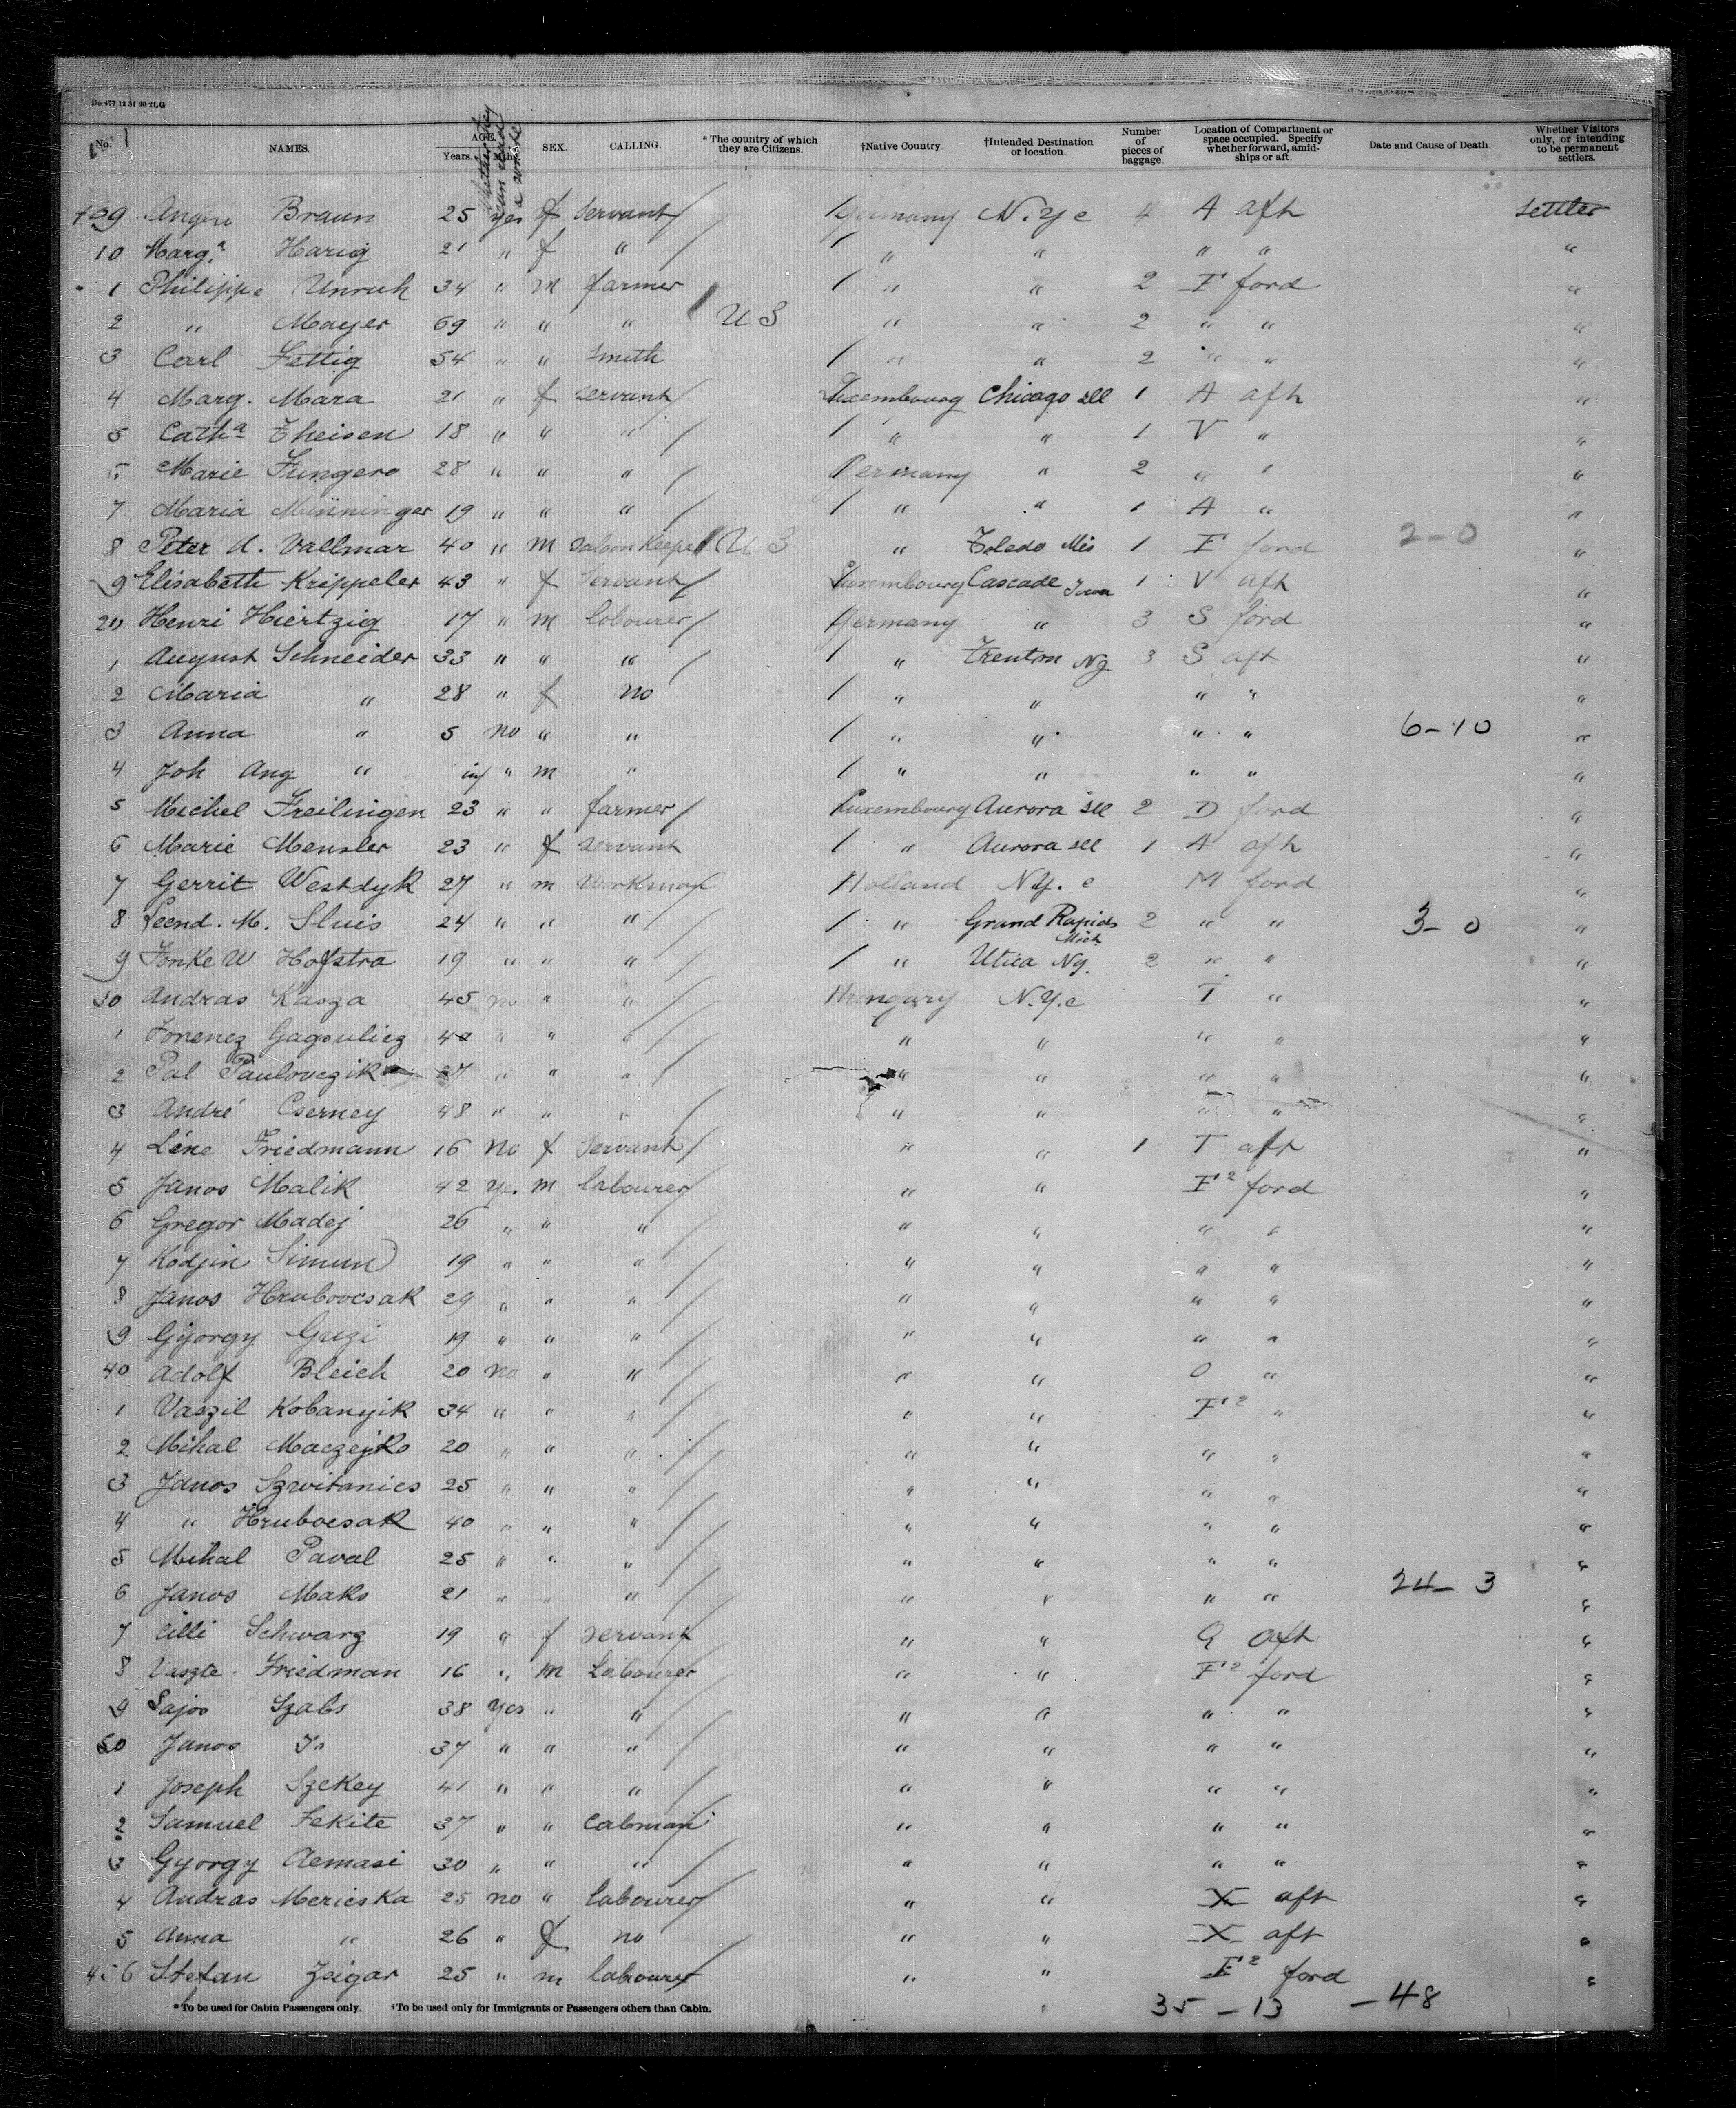 Do 477 12 31 90 2LG
No. NAMES. AGE. Years. Mths. SEX. CALLING. * The country of which they are Citizens. †Native Country. †Intended Destination or location. Number of pieces of baggage. Location of Compartment or space occupied. Specify whether forward, amidships or aft. Date and Cause of Death. Whether Visitors only, or intending to be permanent settlers.
409 Braun 25 yes f servant Germany N.Y c 4 A aft settler
10 Marg.a Harig 21 " f " " " " " "
1 Philippe Unruh 34 " m farmer " " 2 F ford "
2 " Mayer 69 " " " U S " " 2 " " "
3 Carl Fettig 54 " " Smith " " 2 " " "
4 Marg. Mara 21 " f servant Luxembourg Chicago Ill 1 A aft "
5 Cath.a Theisen 18 " " " " " 1 V " "
Marie Jungers 28 " " " Germany " 2 " " "
7 Maria Münninger 19 " " " " " 1 A " "
8 Peter A. Vallmar 40 " m Saloon Keeper U S " Toledo 1 F ford 2-0 "
9 Elisabeth Krippeler 43 " f Servant Luxembourg Cascade Iowa 1 V aft "
20 Henri Hiertzig 17 " m labourer Germany " 3 S ford "
1 August Schneider 33 " " " " Trenton NJ 3 S aft "
2 Maria " 28 " f no " " " " "
3 Anna " 5 no " " " " " " 6-10 "
4 Joh Aug " inf " m " " " " " "
5 Michel Freilingen 23 " " farmer Luxembourg Aurora Ill 2 D ford "
6 Marie Mensler 23 " f servant " Aurora Ill 1 A aft "
7 Gerrit Westdyk 27 " m Workman Holland NY. c M ford "
8 Leend. M. Sluis 24 " " " " Grand Rapids Mich 2 " " 3-0 "
9 Fonke W Hofstra 19 " " " " Utica Ny. 2 " " "
30 Andras Kasza 45 no " " Hungary N.Y.c T " "
1 40 " " " " " " " "
2 Pal Paulovczik 27 " " " " " " " "
3 André Cserney 48 " " " " " " " "
4 Léne Friedmann 16 no f Servant " " 1 T aft "
5 Janos Malik 42 yes m labourer " " F2 ford "
6 Gregor Madej 26 " " " " " " " "
7 Kodjin Simun 19 " " " " " " " "
8 Janos Hrubovcsak 29 " " " " " " " "
9 György Guzi 19 " " " " " " " "
40 Adolf Bleich 20 no " " " " O " "
1 Vaszil Kobanyik 34 " " " " " F2 " "
2 Mihal Maczejko 20 " " " " " " " "
3 Janos Szvitanics 25 " " " " " " " "
4 " Hrubocsak 40 " " " " " " " "
5 Mihal Paval 25 " " " " " " " "
6 Janos Maks 21 " " " " " " " 24-3 "
7 Cilli Schwarz 19 " f servant " " Q aft "
8 Vaszte Friedman 16 " m Labourer " " F2 ford "
9 Lajos Szabs 38 yes " " " " " " "
50 Janos 37 " " " " " " " "
1 Joseph Szekey 41 " " " " " " " "
2 Samuel Fekite 37 " " Cabman " " " " "
3 György Aemasi 30 " " " " " " " "
4 Andras Mericska 25 no " labourer " " X aft "
5 Anna " 26 " f no " " X aft "
456 Stefan Zsigar 25 " m labourer " " F2 ford "
*To be used for Cabin Passengers only. †To be used only for Immigrants or Passengers others than Cabin.
35 - 13 - 48